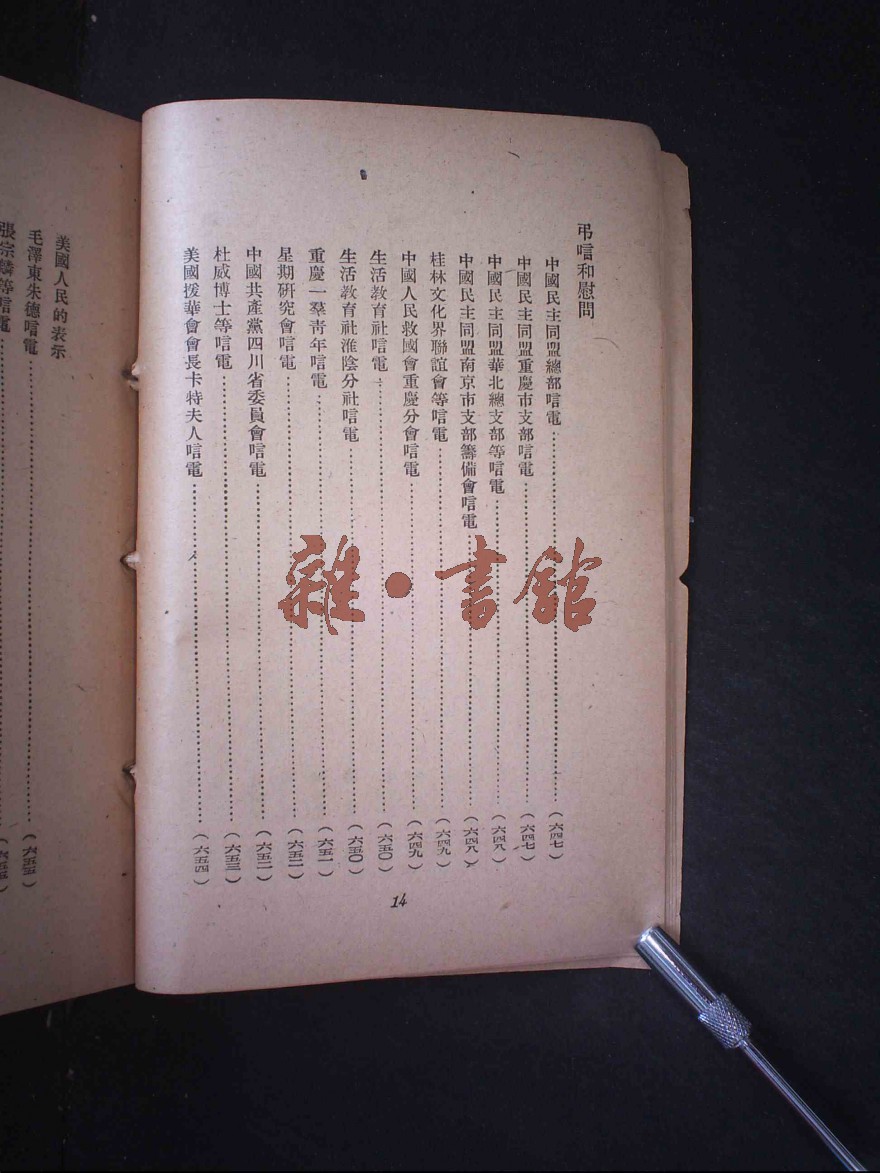 弔唁和慰問
中國民主同盟總部唁電……(六四七)
中國民主同盟重慶市支部唁電……(六四七)
中國民主同盟華北總支部等唁電……(六四八)
中國民主同盟南京市支部籌備會唁電……(六四八)
桂林文化界聯誼會等唁電……(六四九)
中國人民救國會重慶分會唁電……(六四九)
生活教育社唁電……(六五〇)
生活教育社淮陰分社唁電……(六五〇)
重慶一羣靑年唁電……(六五一)
星期研究會唁電……(六五二)
中國共產黨四川省委員會唁電……(六五二)
杜威博士等唁電……(六五三)
美國援華會會長卡特夫人唁電……(六五四)
14
美國人民的表示
毛澤東朱德唁電……(六五五)
張宗麟等唁電……(六五五)
雜·書館